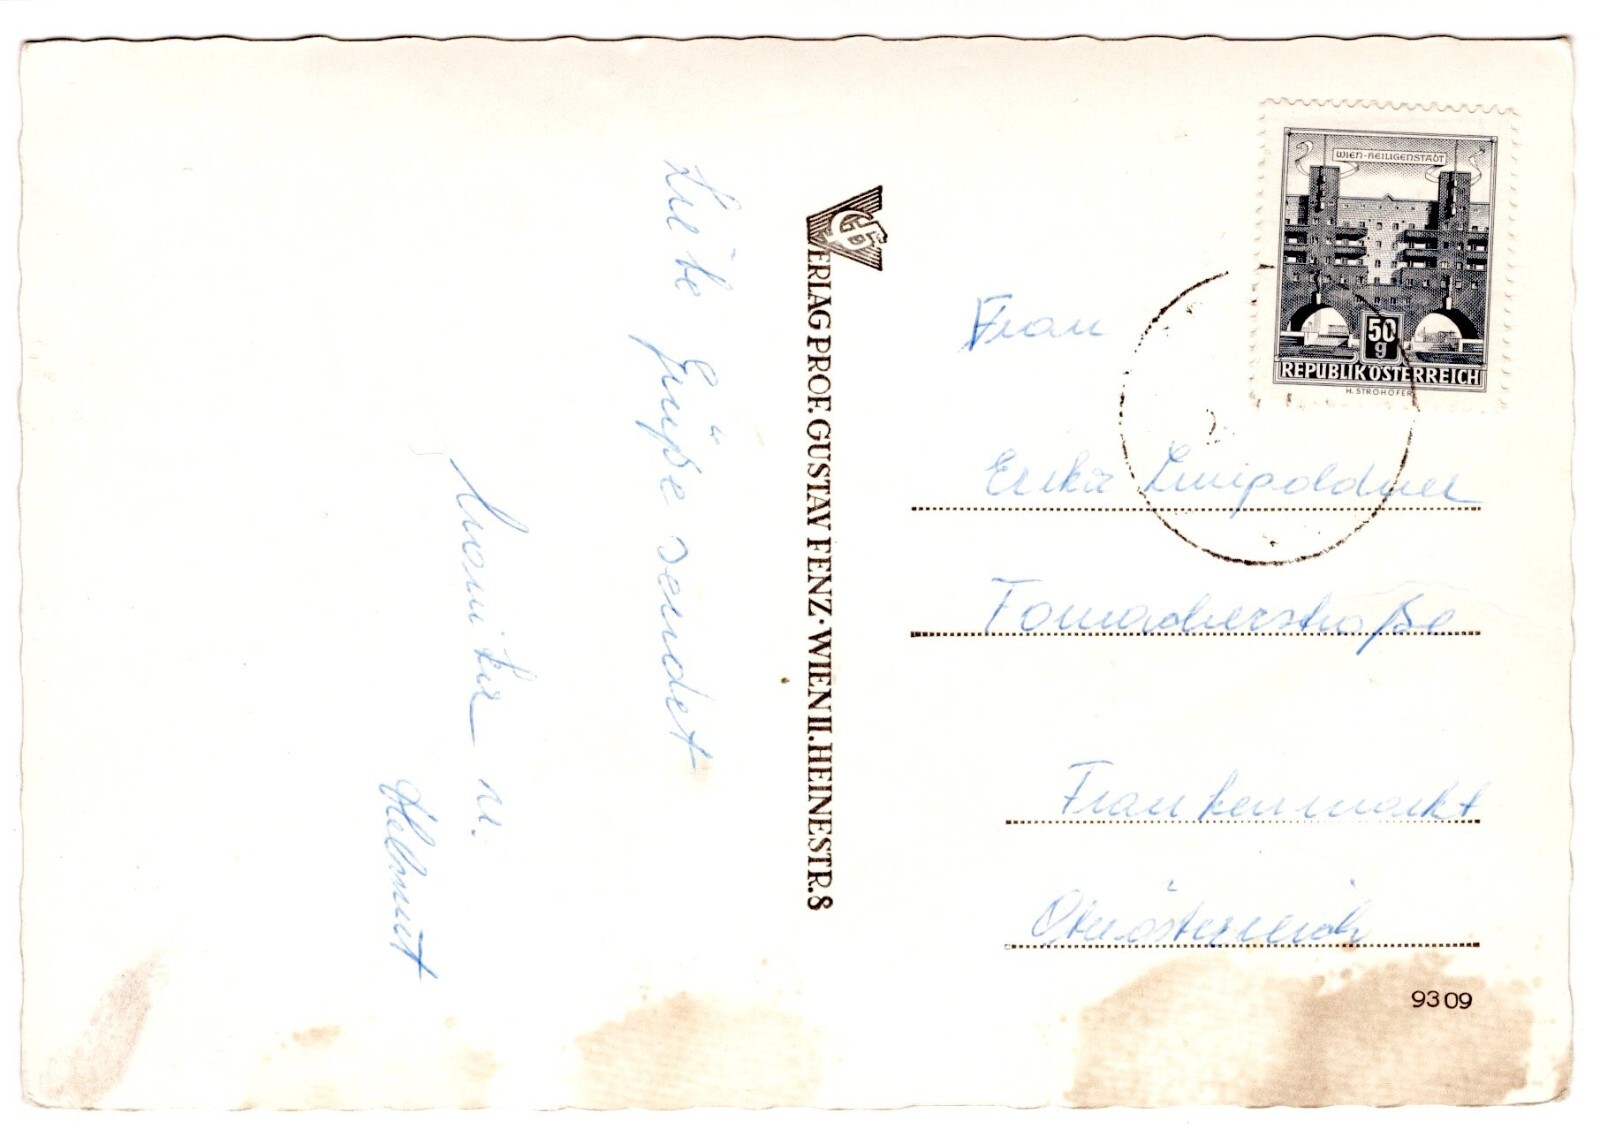 Liebe Grüße sendet
Monika u.
Helmut
VERLAG PROF. GUSTAV FENZ · WIEN II. HEINESTR. 8
WIEN-HEILIGENSTADT
50
g
REPUBLIK ÖSTERREICH
H. STROHOFER
Frau
Erika
Frankenmarkt
Oberösterreich
9309